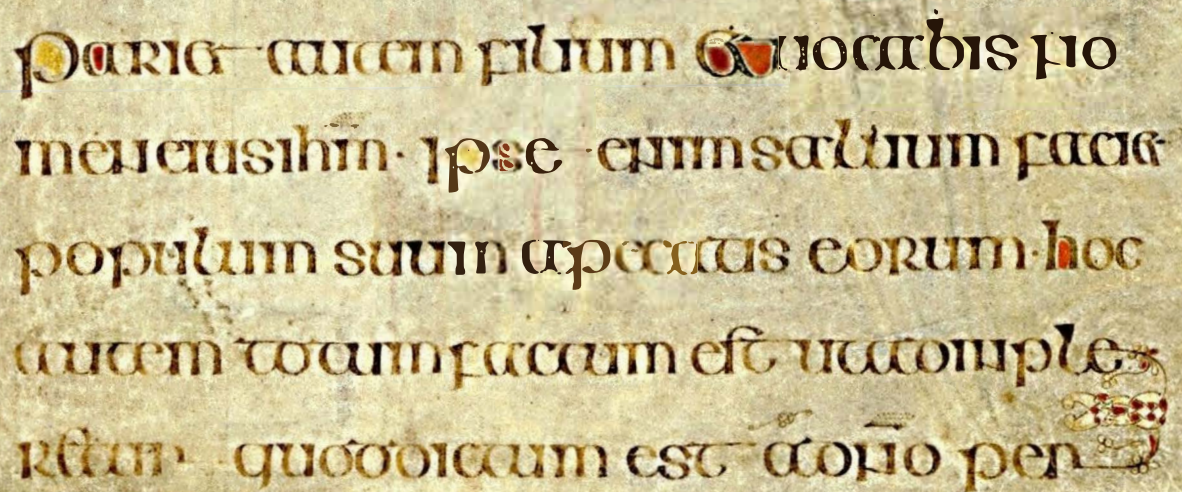 Pariet autem filium & uocabis no
men eiusihm̄· Ipse enimsaluum faciet
populum suum apeccatis eorum·hoc
autem totumfactum est utadimple
retur quoddictum est adn̄o per